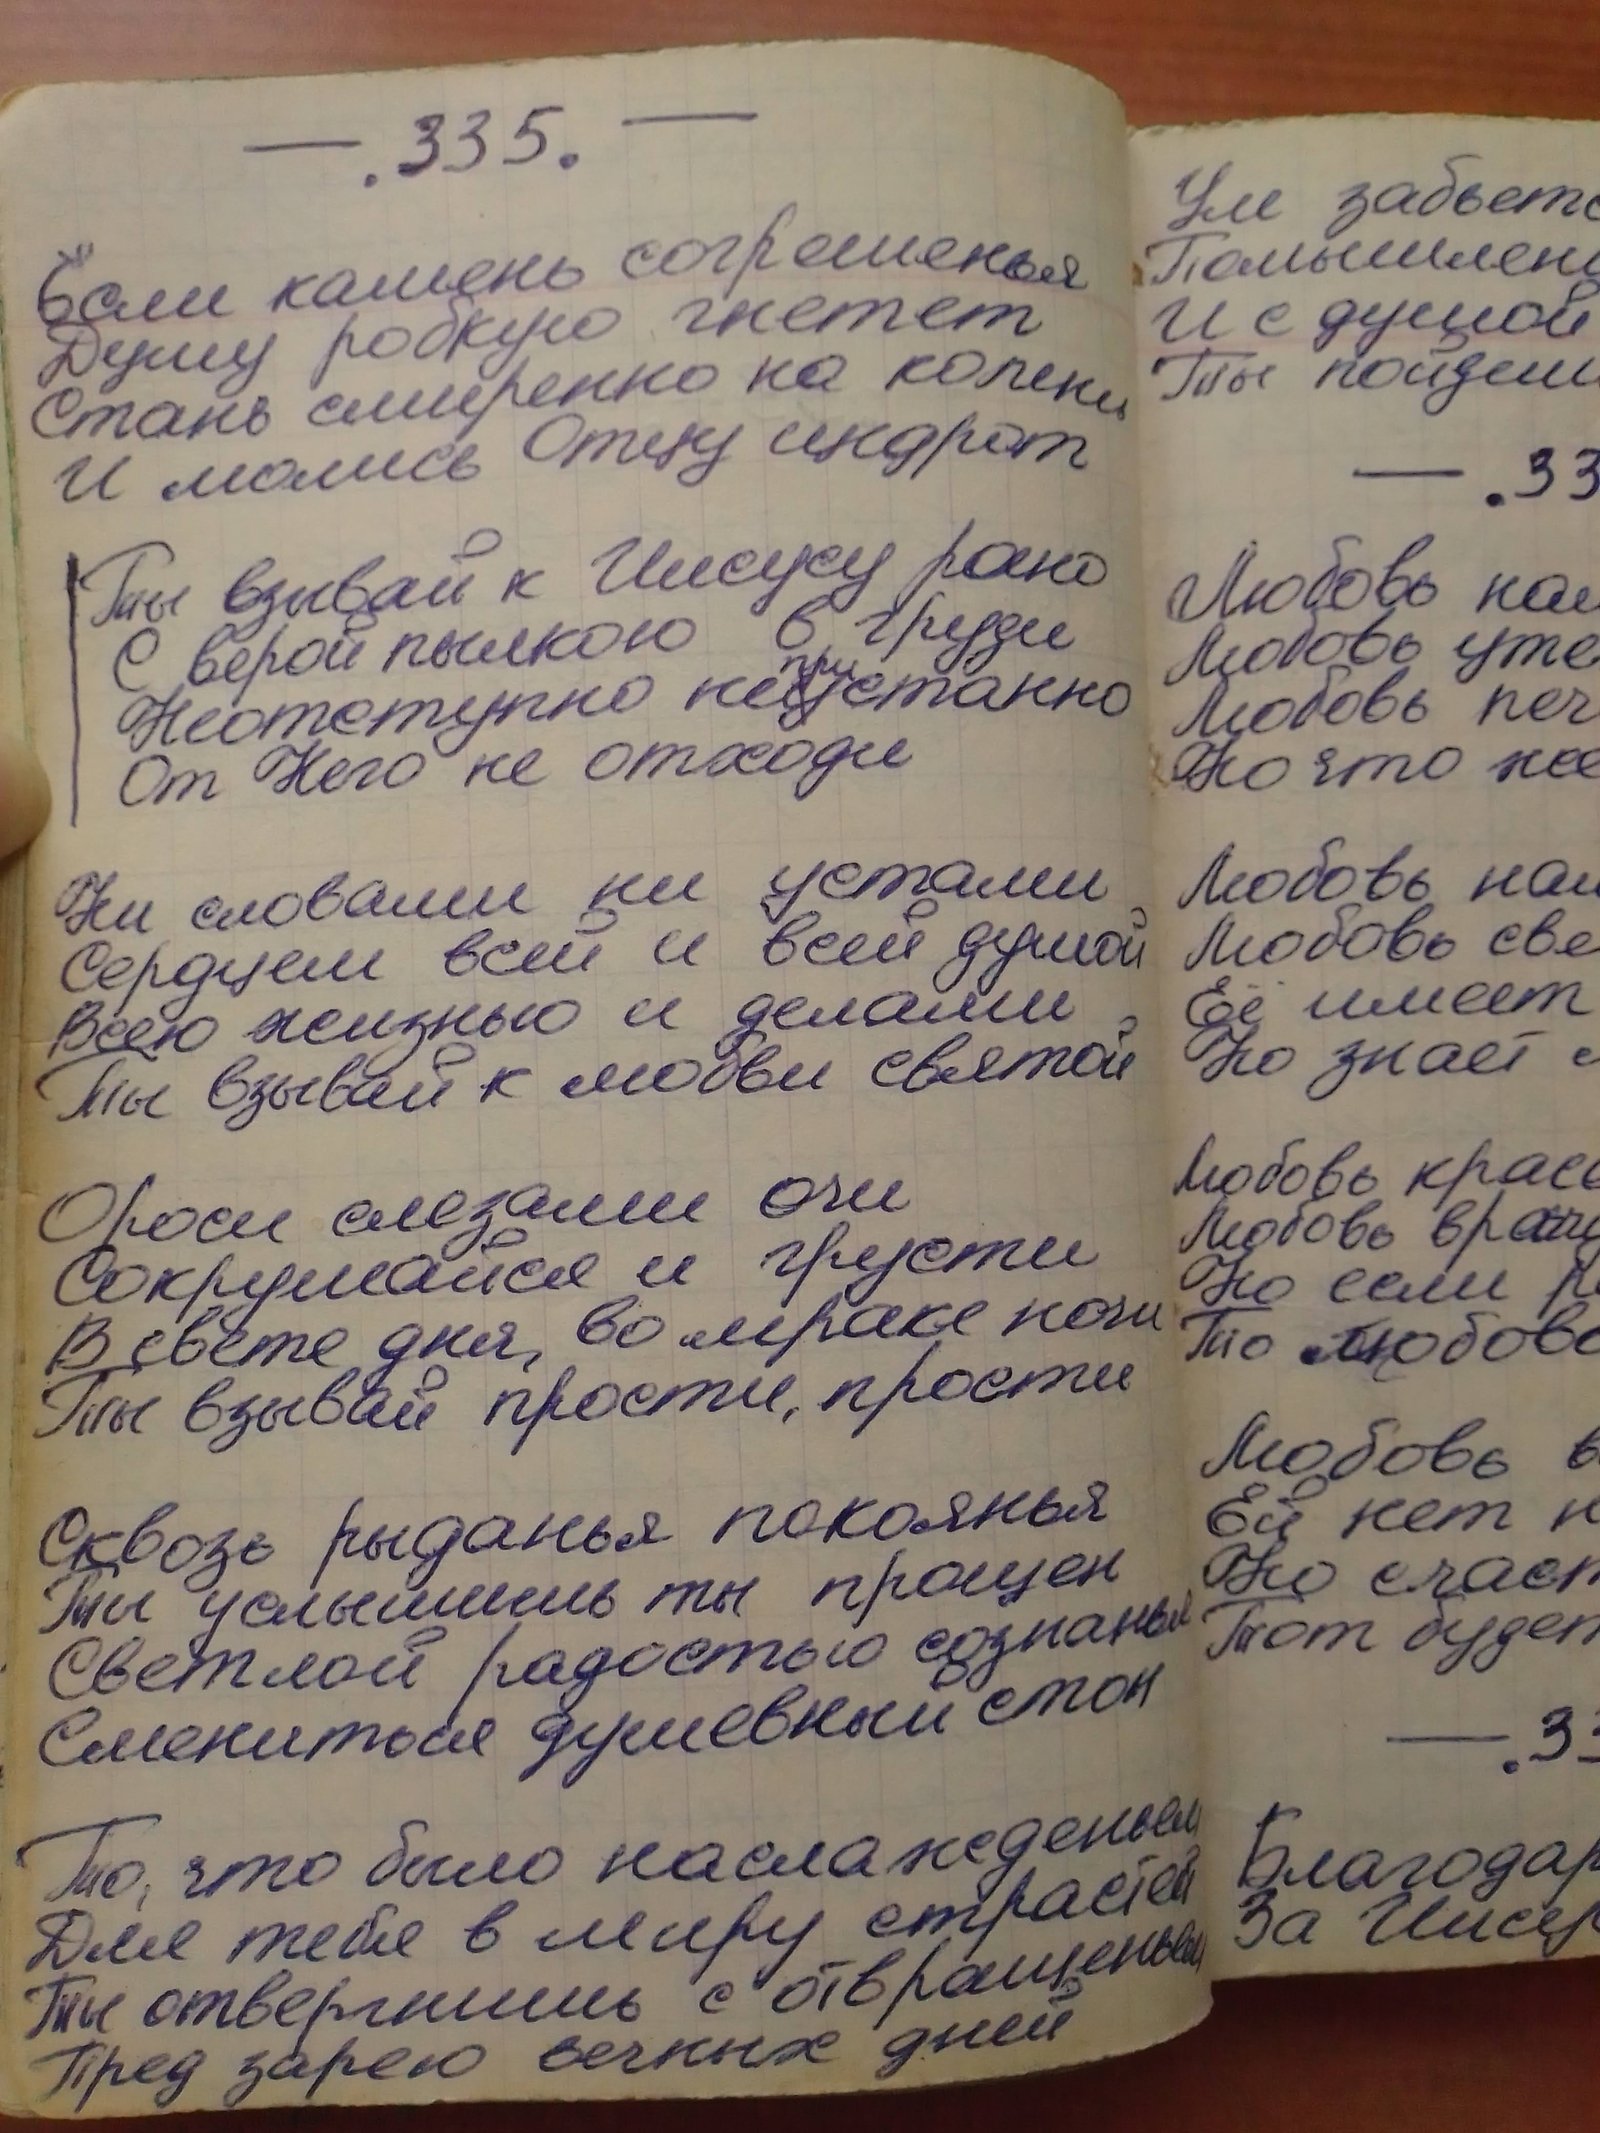 — .335. —
Если камень согрешенья
Душу робкую гнетет
Стань смиренно на колени
И молись Отцу щедрот
Ты взывай к Иисусу рано
С верой пылкою в груди
Неотступно непрустанно
От Него не отходи
Ни словами ни устами
Сердцем всей и всей душой
Всею жизнью и делами
Ты взывай к любви святой
Ороси слезами очи
Сокрушайся и грусти
В свете дня, во мраке ночи
Ты взывай прости, прости
Сквозь рыданья покоянья
Ты услышишь ты прощен
Светлой радостью сознанья
Смениться душевный стон
То, что было наслажденьем
Для тебя в миру страстей
Ты отвергнишь с отвращеньем
Пред зарею вечных дней
Ум забьетс
Помышлень
И с душой
Ты пойдеш
— .33
Любовь нам
Любовь уте
Любовь печ
Но что же
Любовь нам
Любовь све
Её имеет
Но знает
Любовь крас
Любовь врач
Но если р
То любовь
Любовь в
Ей нет н
Но счаст
Тот будет
— .33
Благодар
За Иисус